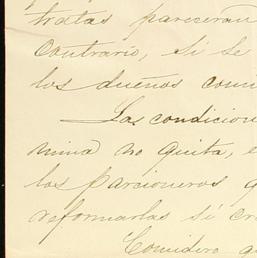 tratas parecerán
contrario, si se
los dueños comi
Las condicion
mina no quita, e
los parcioneros q
reformarlas si cre
Considero q